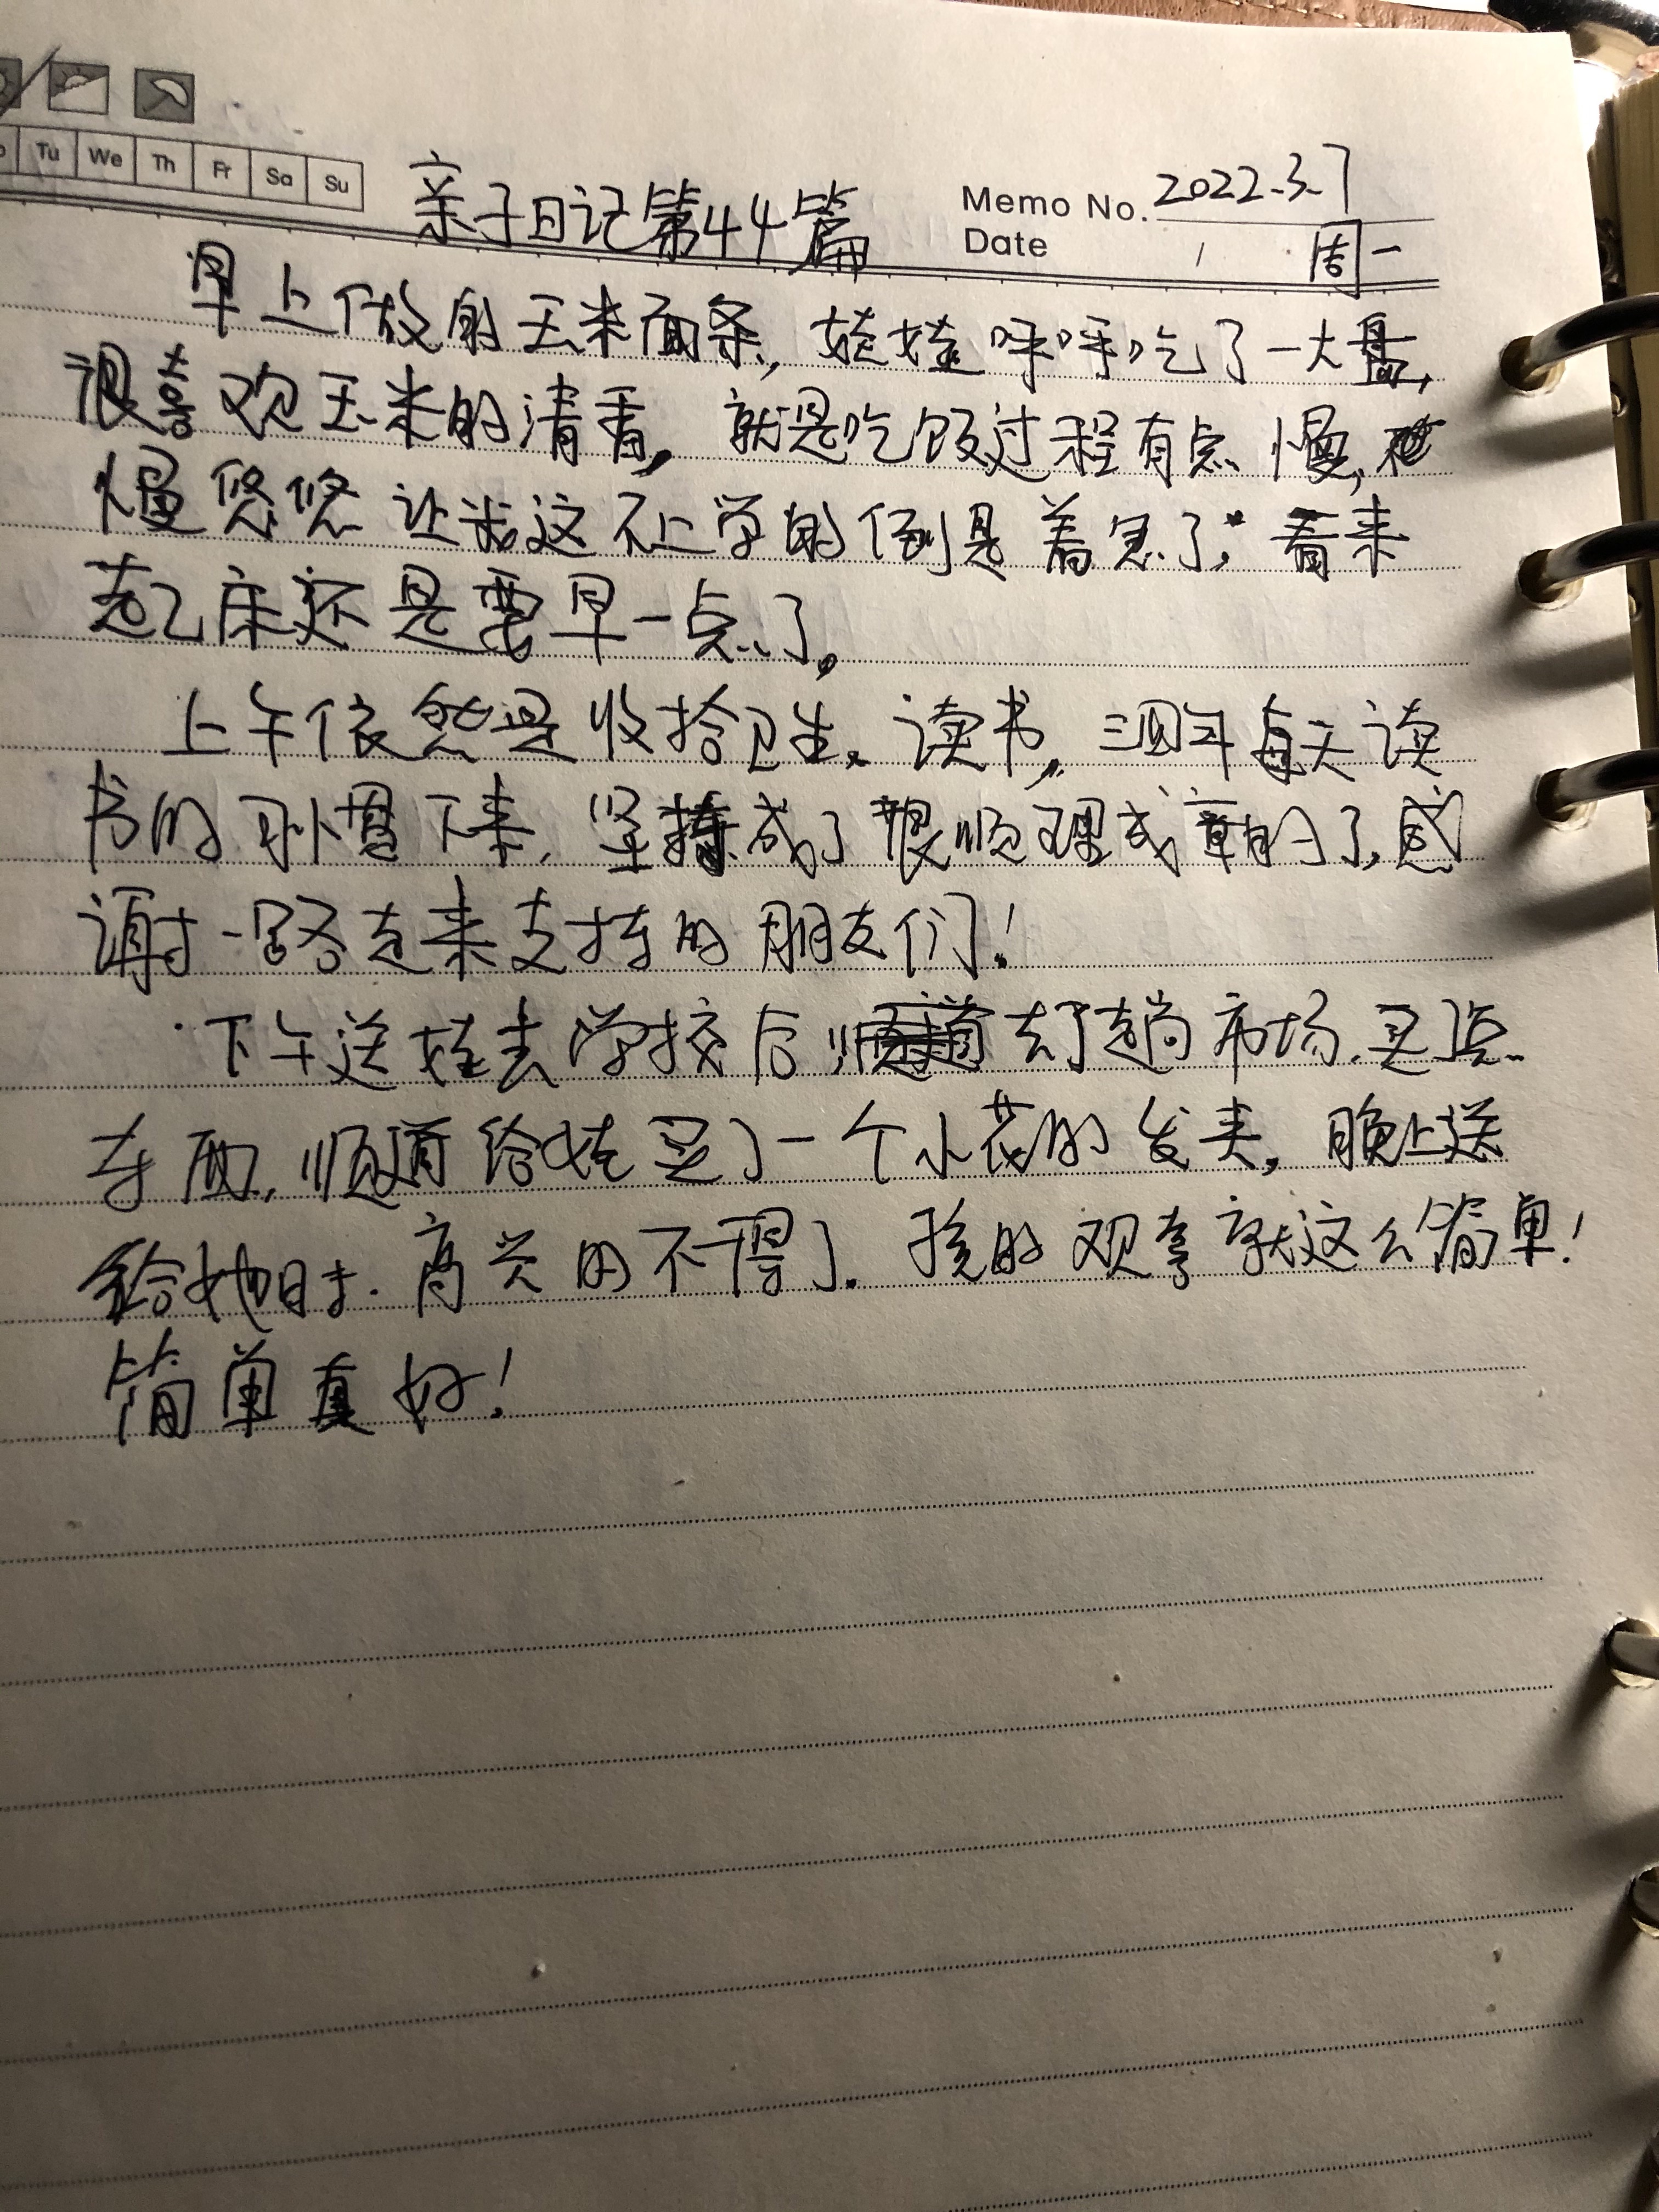 Tu We Th Fr Sa Su
亲子日记第44篇
Memo No. 2022.3.7
Date / 周一
早上做的玉米面条,娃娃呼呼吃了一大盘,
很喜欢玉米的清香,就是吃饭过程有点慢,
慢悠悠让我这不上学的倒是着急了,看来
起床还是要早一点了。
上午依然是收拾卫生、读书,三四年每天读
书的习惯下来,坚持成了很顺理成章的了,感
谢一路走来支持的朋友们!
下午送娃去学校后去了趟市场,买点
东西,顺道给娃买了一个小花的发夹,晚上送
给她时,高兴的不得了。孩的观享就这么简单!
简单真好!